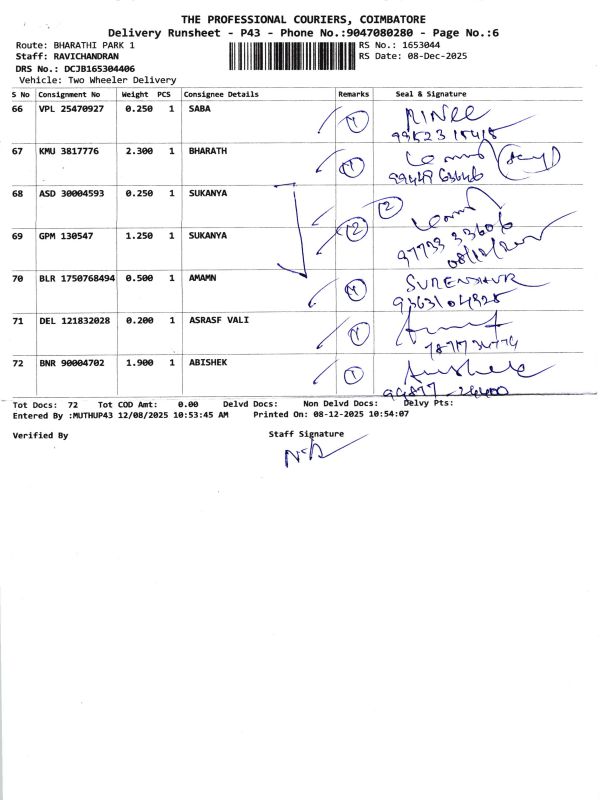 THE PROFESSIONAL COURIERS, COIMBATORE
Delivery Runsheet - P43 - Phone No.:9047080280 - Page No.:6
Route: BHARATHI PARK 1 RS No.: 1653044
Staff: RAVICHANDRAN RS Date: 08-Dec-2025
DRS No.: DCJB165304406
Vehicle: Two Wheeler Delivery
S No Consignment No Weight PCS Consignee Details Remarks Seal & Signature
66 VPL 25470927 0.250 1 SABA
67 KMU 3817776 2.300 1 BHARATH
68 ASD 30004593 0.250 1 SUKANYA 2
69 GPM 130547 1.250 1 SUKANYA 2
97733 33606
08/12/2025
70 BLR 1750768494 0.500 1 AMAMN SURENDHUR
71 DEL 121832028 0.200 1 ASRASF VALI
72 BNR 90004702 1.900 1 ABISHEK 1
Tot Docs: 72 Tot COD Amt: 0.00 Delvd Docs: Non Delvd Docs: Delvy Pts:
Entered By :MUTHUP43 12/08/2025 10:53:45 AM Printed On: 08-12-2025 10:54:07
Verified By Staff Signature